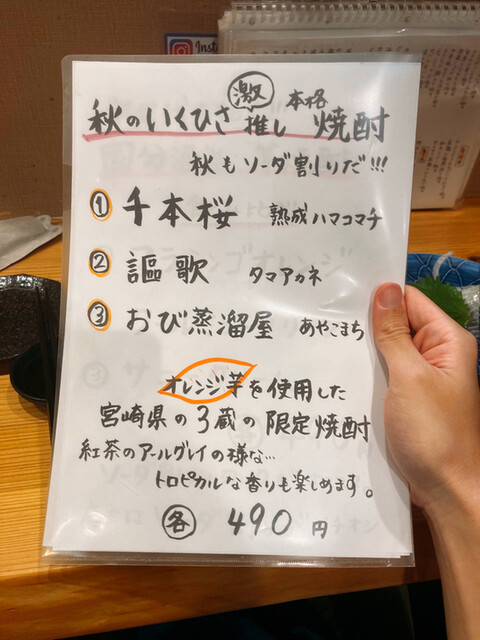 Inst
秋のいくひさ 激推し 本格焼酎
秋もソーダ割りだ!!!
① 千本桜 熟成ハマコマチ
② 謳歌 タマアカネ
③ おび蒸溜屋 あやこまち
オレンジ芋を使用した
宮崎県の3蔵の限定焼酎
紅茶のアールグレイの様な…
トロピカルな香りも楽しめます。
各 490円